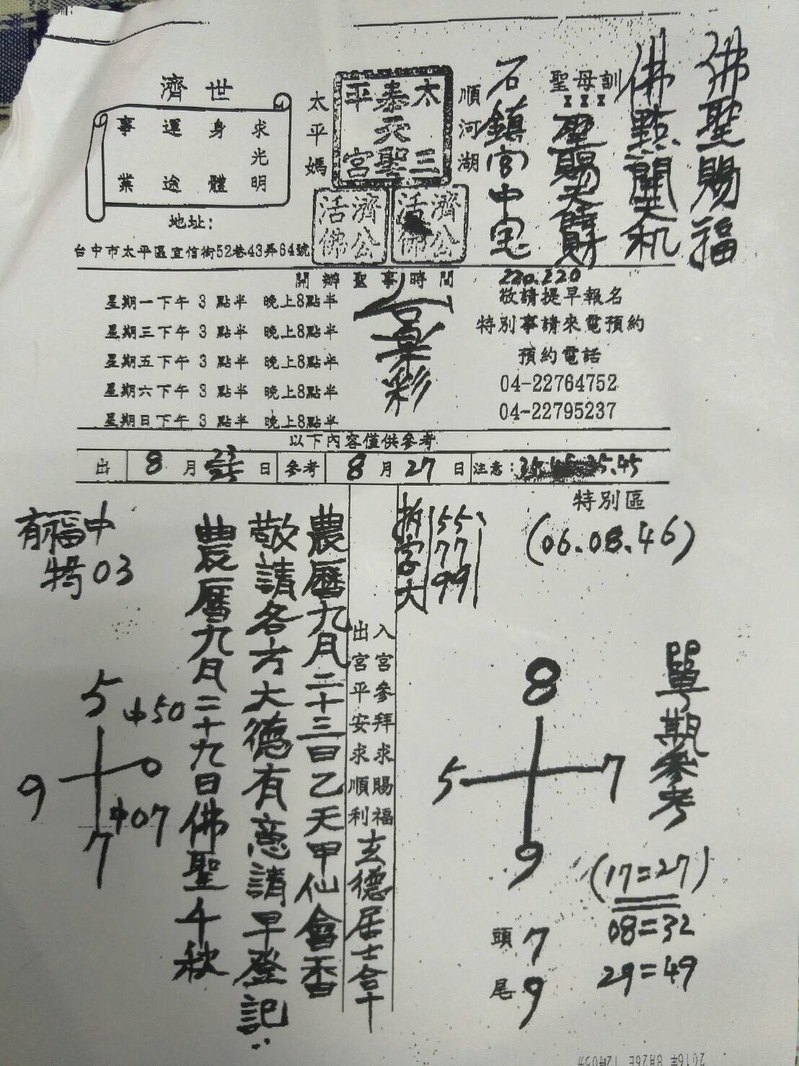 佛聖賜福
佛點開天机
聖母訓
聖賜天財
順河湖
石鎮宮中宝
220.220
太三
泰天聖
平宮
太平媽
濟公
活佛
濟公
活佛
濟世
求光明
身體
運途
事業
地址:
台中市太平區宜信街52巷43弄64號
開辦聖事時間
星期一下午 3 點半 晚上8點半
星期三下午 3 點半 晚上8點半
星期五下午 3 點半 晚上8點半
星期六下午 3 點半 晚上8點半
星期日下午 3 點半 晚上8點半
六合彩
敬請提早報名
特別事請來電預約
預約電話
04-22764752
04-22795237
以下內容僅供參考
出 8 月 23 日 參考 8 月 27 日 注意:
35.45
特別區
(06.08.46)
單期參考
8
5 7
9
(17=27)
08=32
29=49
頭 7
尾 9
拆字大
55
77
99
入宮參拜求賜福
出宮平安求順利
玄德居士拿
農曆九月二十三日乙天甲仙會香
敬請各方大德有意請早登記
農曆九月二十九日佛聖千秋
有福中
特03
5
中50
9 0
中07
7
2016年 8月26日 12時05分